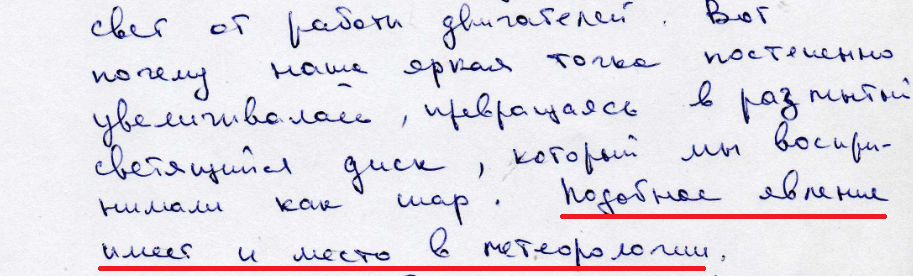 свет от работы двигателей. Вот
почему наша яркая точка постепенно
увеличивалась, превращаясь в размытый
светящийся диск, который мы воспри-
нимали как шар. Подобное явление
имеет и место в метеорологии.